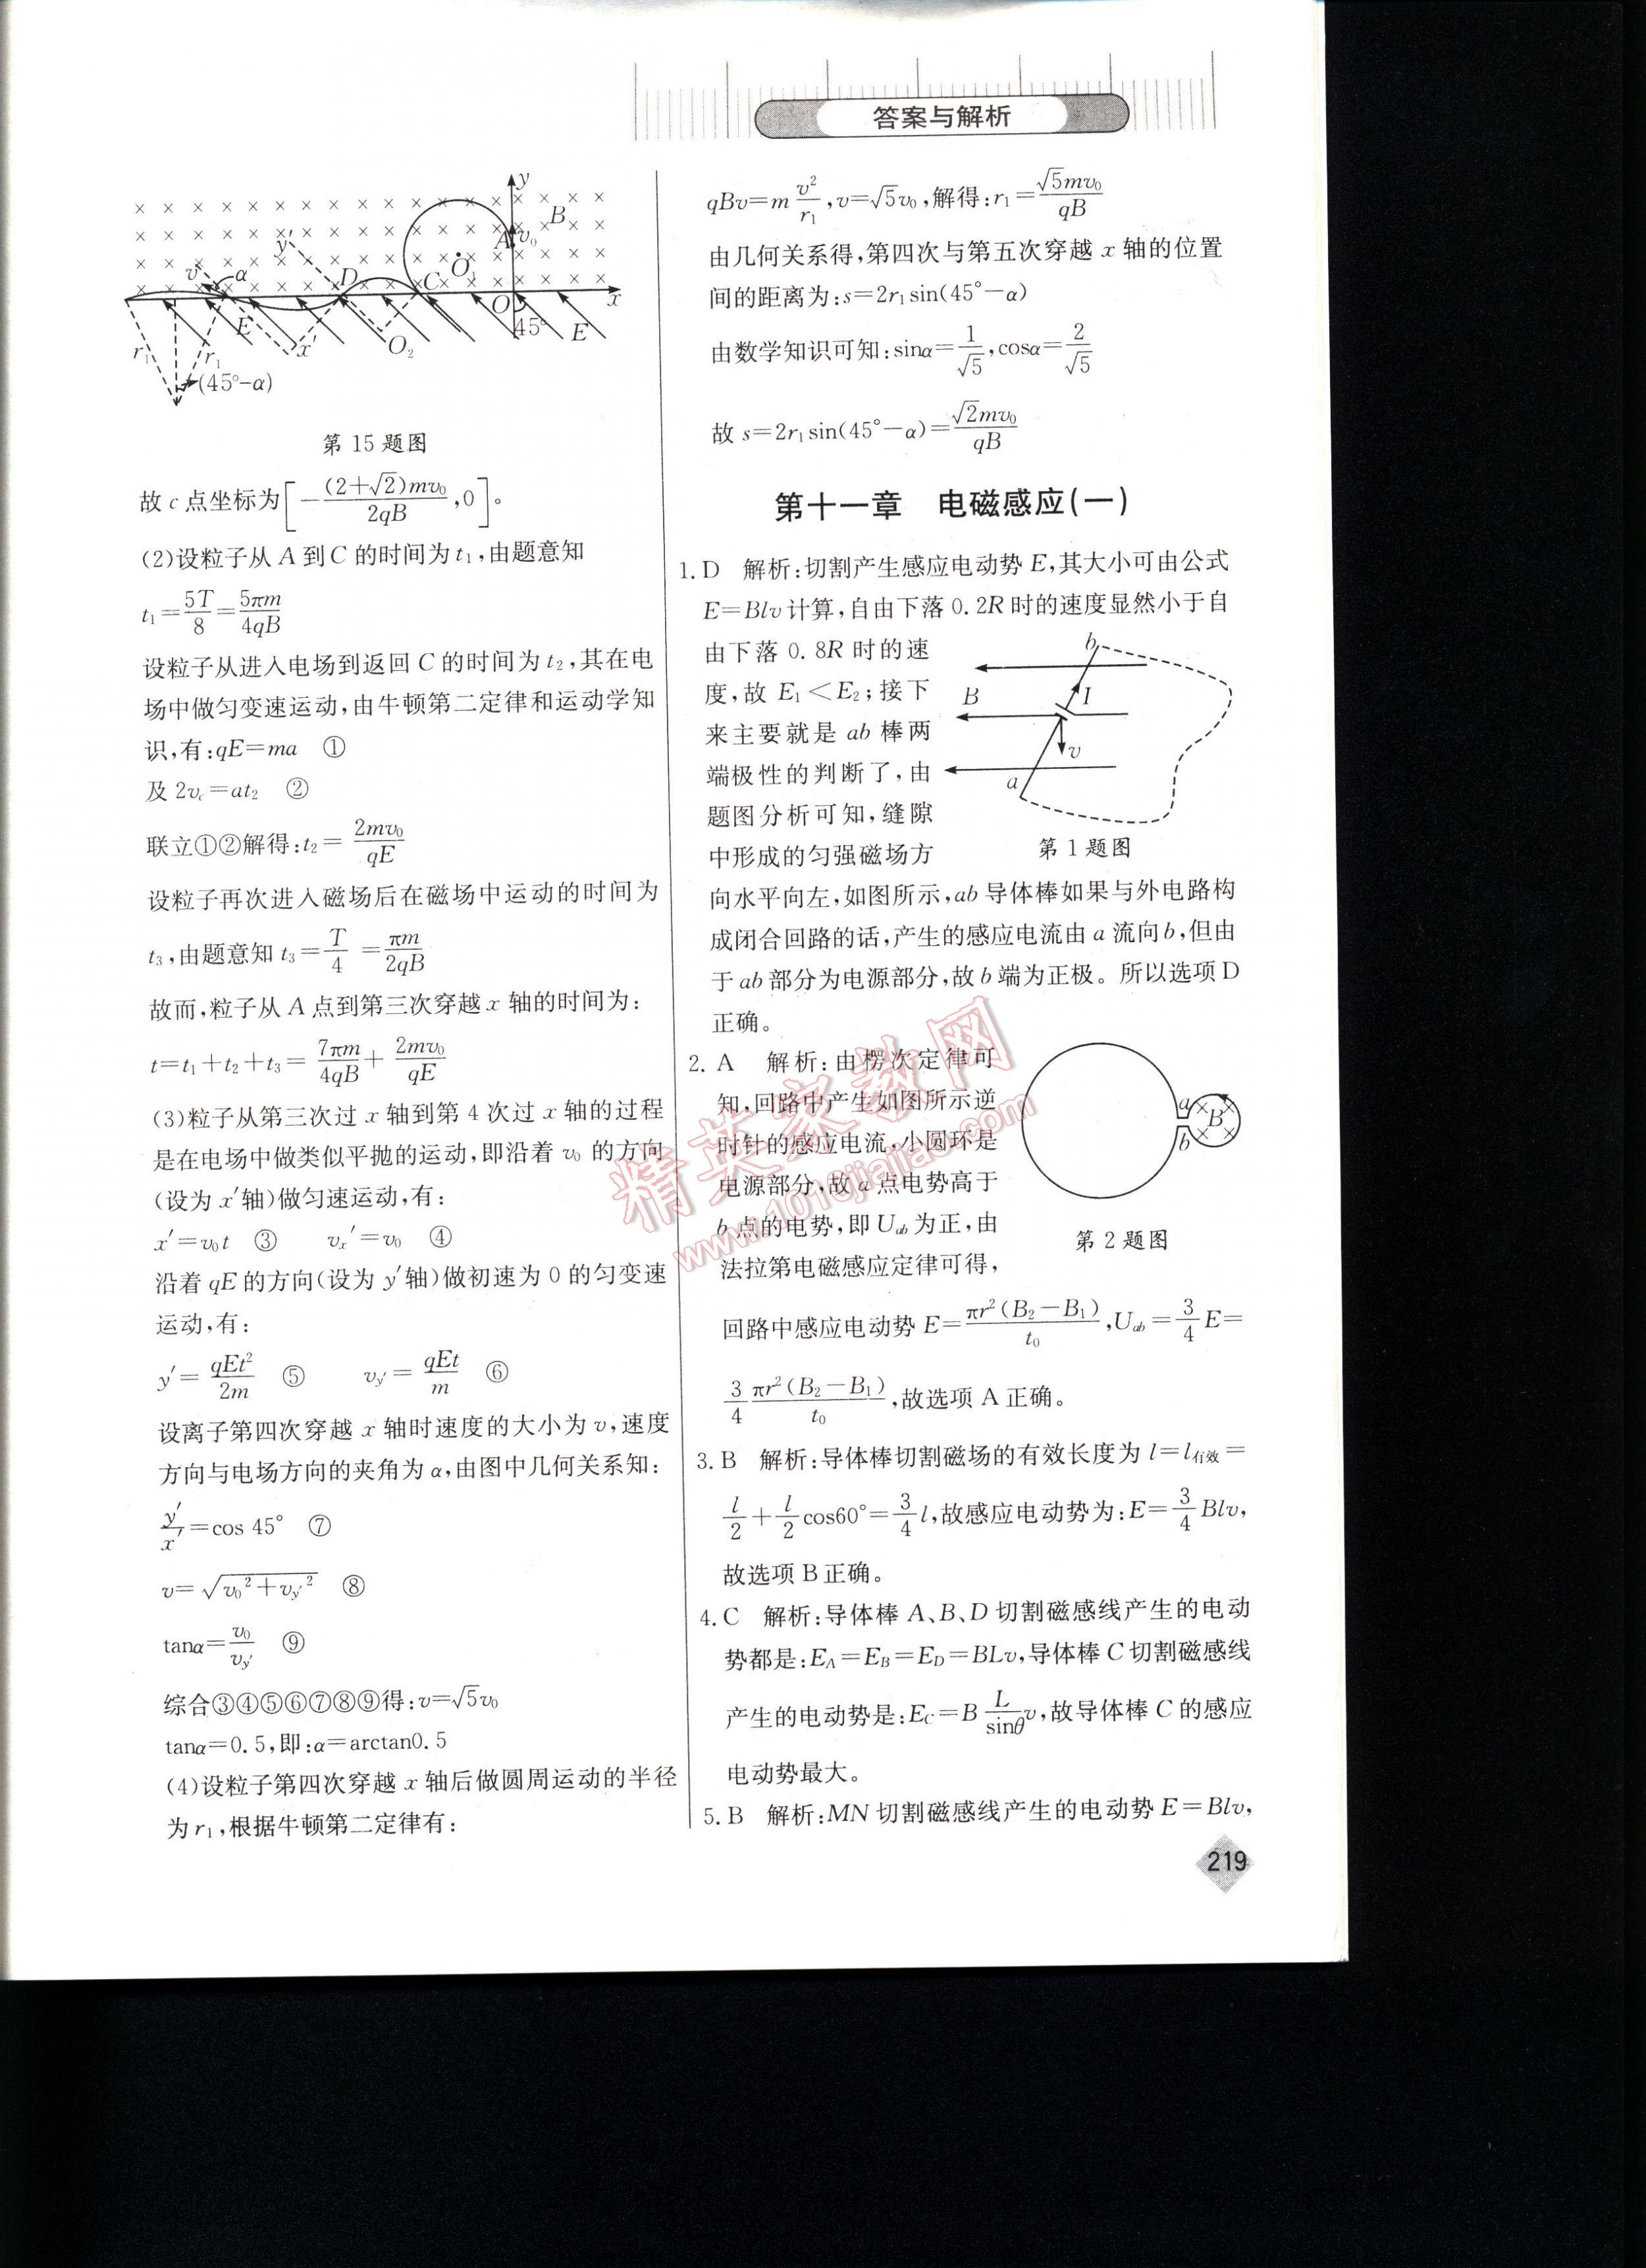 答案与解析
y
B
A v₀
y′
v α D O₁ C O x
E 45° E
r₁ r₁ x O₂
(45°-α)
第15题图
故c点坐标为[-(2+√2)mv₀/2qB,0]。
(2)设粒子从A到C的时间为t₁,由题意知
t₁=5T/8=5πm/4qB
设粒子从进入电场到返回C的时间为t₂,其在电
场中做匀变速运动,由牛顿第二定律和运动学知
识,有:qE=ma ①
及2v꜀=at₂ ②
联立①②解得:t₂=2mv₀/qE
设粒子再次进入磁场后在磁场中运动的时间为
t₃,由题意知t₃=T/4=πm/2qB
故而,粒子从A点到第三次穿越x轴的时间为:
t=t₁+t₂+t₃=7πm/4qB+2mv₀/qE
(3)粒子从第三次过x轴到第4次过x轴的过程
是在电场中做类似平抛的运动,即沿着v₀的方向
(设为x′轴)做匀速运动,有:
x′=v₀t ③ vₓ′=v₀ ④
沿着qE的方向(设为y′轴)做初速为0的匀变速
运动,有:
y′=qEt²/2m ⑤ v_y′=qEt/m ⑥
设离子第四次穿越x轴时速度的大小为v,速度
方向与电场方向的夹角为α,由图中几何关系知:
y′/x′=cos 45° ⑦
v=√(v₀²+v_y′²) ⑧
tanα=v₀/v_y′ ⑨
综合③④⑤⑥⑦⑧⑨得:v=√5v₀
tanα=0.5,即:α=arctan0.5
(4)设粒子第四次穿越x轴后做圆周运动的半径
为r₁,根据牛顿第二定律有:
qBv=m v²/r₁,v=√5v₀,解得:r₁=√5mv₀/qB
由几何关系得,第四次与第五次穿越x轴的位置
间的距离为:s=2r₁sin(45°-α)
由数学知识可知:sinα=1/√5,cosα=2/√5
故s=2r₁sin(45°-α)=√2mv₀/qB
第十一章 电磁感应(一)
1.D 解析:切割产生感应电动势E,其大小可由公式
E=Blv计算,自由下落0.2R时的速度显然小于自
由下落0.8R时的速
度,故E₁<E₂;接下
来主要就是ab棒两
端极性的判断了,由
题图分析可知,缝隙
中形成的匀强磁场方
b
B I
v
a
第1题图
向水平向左,如图所示,ab导体棒如果与外电路构
成闭合回路的话,产生的感应电流由a流向b,但由
于ab部分为电源部分,故b端为正极。所以选项D
正确。
2.A 解析:由楞次定律可
知,回路中产生如图所示逆
时针的感应电流,小圆环是
电源部分,故a点电势高于
b点的电势,即U_ab为正,由
法拉第电磁感应定律可得,
a
B
b
第2题图
回路中感应电动势E=πr²(B₂-B₁)/t₀,U_ab=3/4E=
3/4 πr²(B₂-B₁)/t₀,故选项A正确。
3.B 解析:导体棒切割磁场的有效长度为l=l有效=
l/2+l/2cos60°=3/4l,故感应电动势为:E=3/4Blv,
故选项B正确。
4.C 解析:导体棒A、B、D切割磁感线产生的电动
势都是:E_A=E_B=E_D=BLv,导体棒C切割磁感线
产生的电动势是:E_C=B L/sinθ v,故导体棒C的感应
电动势最大。
5.B 解析:MN切割磁感线产生的电动势E=Blv,
219
精英家教网
www.1010jiajiao.com